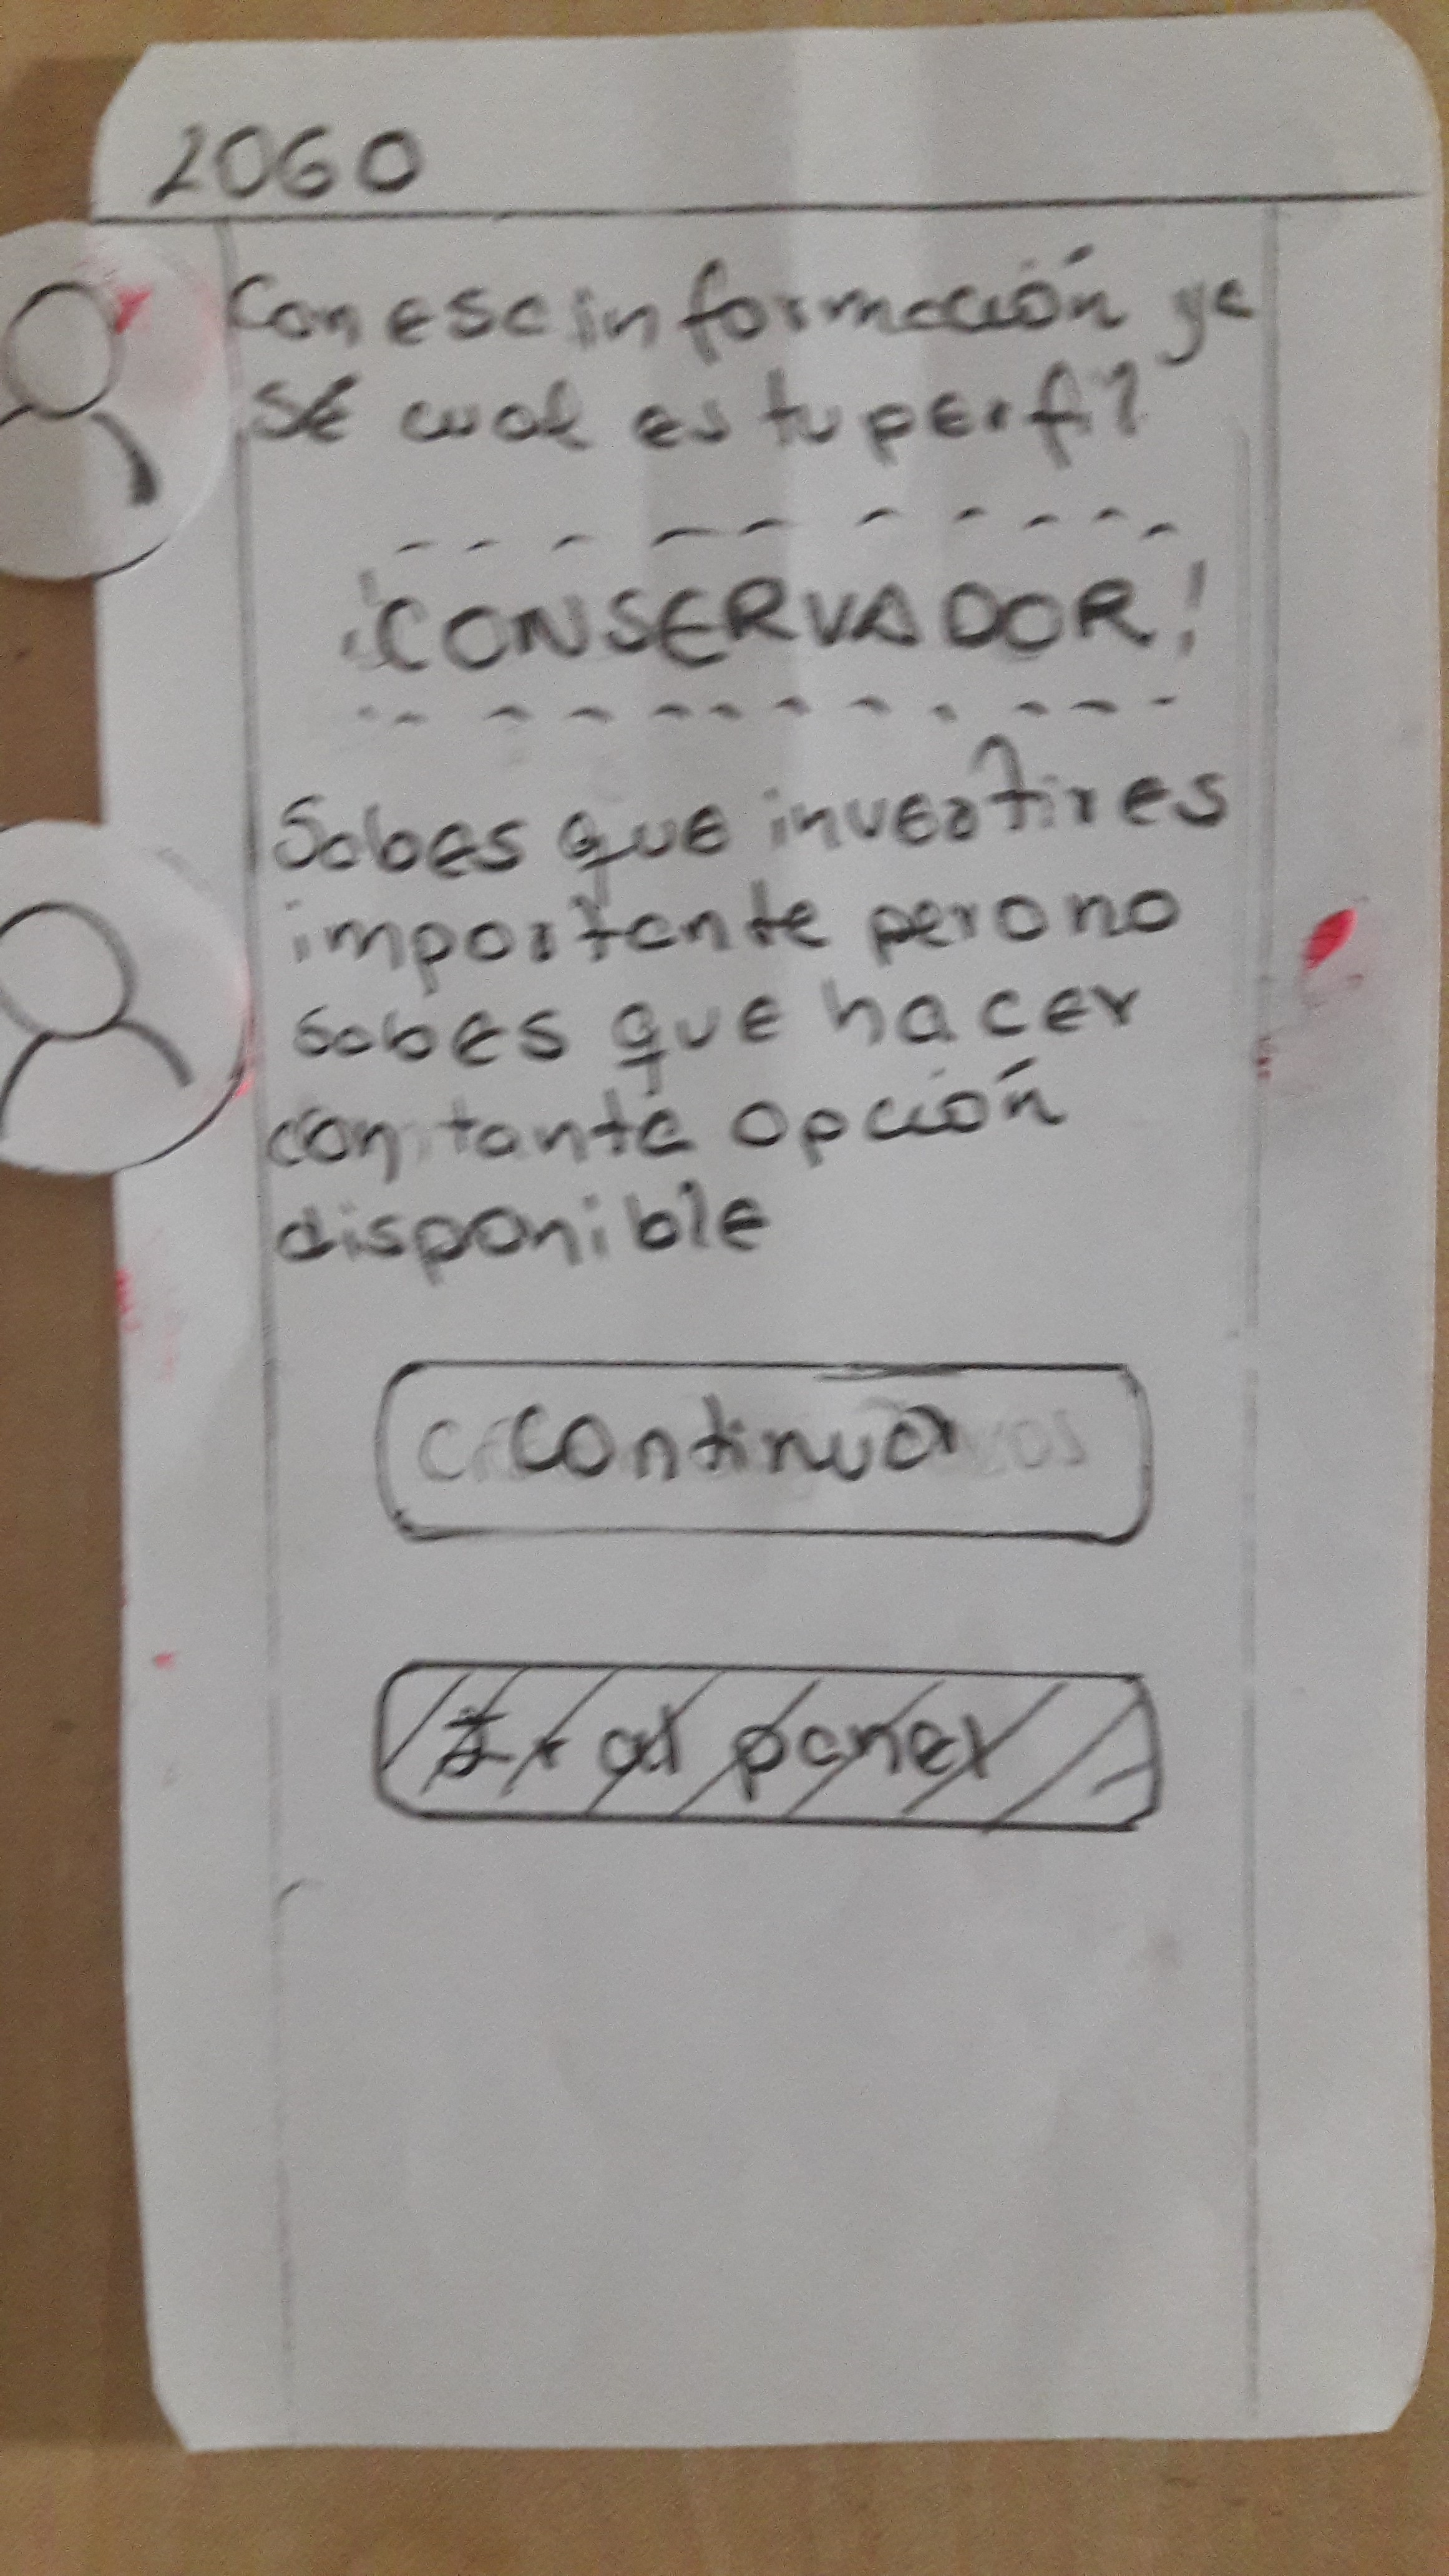 LOGO
Con esa información ya
sé cual es tu perfil
¡CONSERVADOR!
Sabes que invertir es
importante pero no
sabes que hacer
con tanta opción
disponible
Continuar
Ir al panel